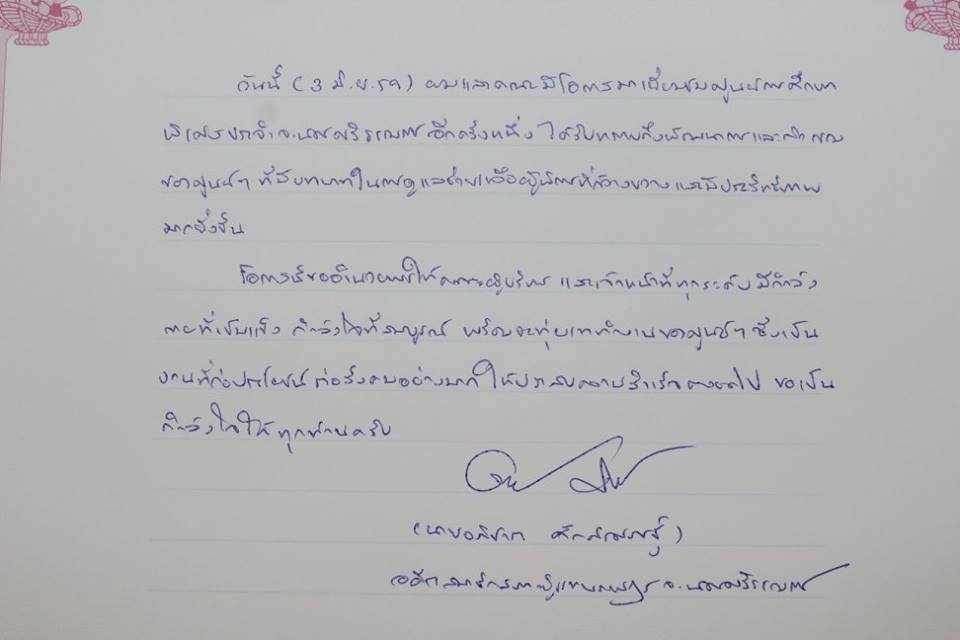 วันนี้ (3 มิ.ย.59) ผมและคณะมีโอกาสมาเยี่ยมชมศูนย์การศึกษา
พิเศษประจำ จ.นครสวรรค์ อีกครั้งหนึ่ง ได้รับทราบถึงพัฒนาการและ
ของศูนย์ฯ ที่มีบทบาทในการดูแลช่วยเหลือผู้พิการที่กว้างขวาง และมีประสิทธิภาพ
มากยิ่งขึ้น
โอกาสนี้ขออำนวยพรให้คณะผู้บริหาร และเจ้าหน้าที่ทุกระดับ มีกำลัง
กายที่เข้มแข็ง กำลังใจที่สมบูรณ์ พร้อมจะทุ่มเททำงานของศูนย์ฯ ซึ่งเป็น
งานที่ก่อประโยชน์ต่อสังคมอย่างมาก ให้ประสบความสำเร็จตลอดไป ขอเป็น
กำลังใจให้ทุกท่านครับ
(นาย)
อดีตสมาชิกสภาผู้แทนราษฎร จ.นครสวรรค์